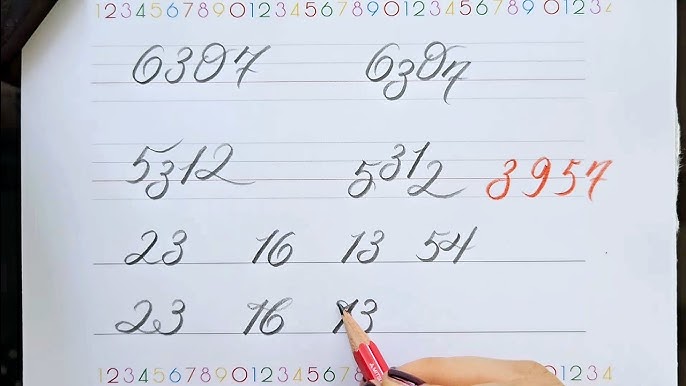 1234567890123456789012345678901234567890123456789012 34
6307 6307
5312 5312 3957
23 16 13 54
23 16 13